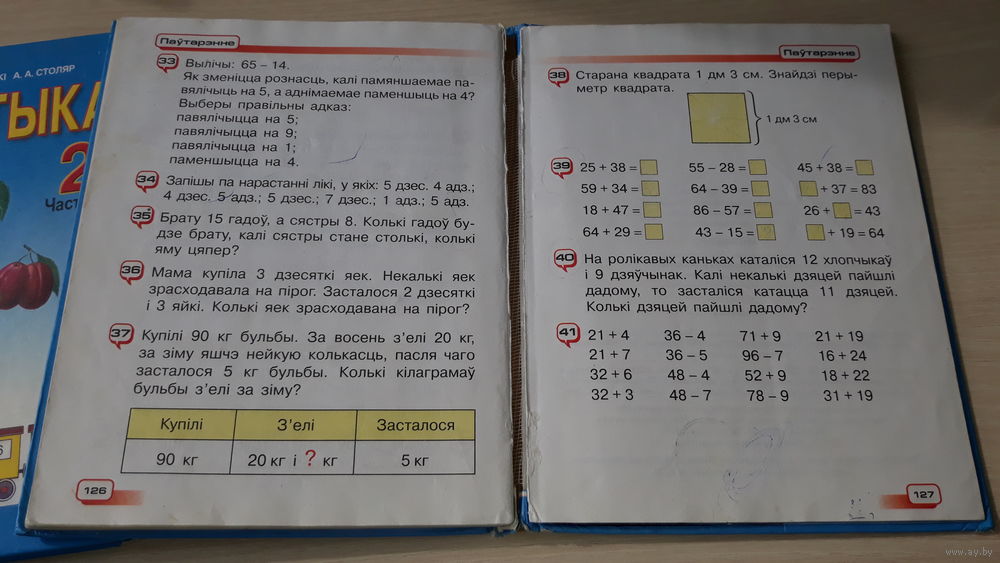 КІ А. А. СТОЛЯР
ТЫКА
2
Част
6
Паўтарэнне
33 Вылічы: 65 – 14.
Як зменіцца рознасць, калі памяншаемае па-
вялічыць на 5, а аднімаемае паменшыць на 4?
Выберы правільны адказ:
павялічыцца на 5;
павялічыцца на 9;
павялічыцца на 1;
паменшыцца на 4.
34 Запішы па нарастанні лікі, у якіх: 5 дзес. 4 адз.;
4 дзес. 5 адз.; 5 дзес.; 7 дзес.; 1 адз.; 5 адз.
35 Брату 15 гадоў, а сястры 8. Колькі гадоў бу-
дзе брату, калі сястры стане столькі, колькі
яму цяпер?
36 Мама купіла 3 дзесяткі яек. Некалькі яек
зрасходавала на пірог. Засталося 2 дзесяткі
і 3 яйкі. Колькі яек зрасходавала на пірог?
37 Купілі 90 кг бульбы. За восень з’елі 20 кг,
за зіму яшчэ нейкую колькасць, пасля чаго
засталося 5 кг бульбы. Колькі кілаграмаў
бульбы з’елі за зіму?
Купілі З’елі Засталося
90 кг 20 кг і ? кг 5 кг
126
Паўтарэнне
38 Старана квадрата 1 дм 3 см. Знайдзі перы-
метр квадрата.
1 дм 3 см
39 25 + 38 = 55 – 28 = 45 + 38 =
59 + 34 = 64 – 39 = + 37 = 83
18 + 47 = 86 – 57 = 26 + = 43
64 + 29 = 43 – 15 = + 19 = 64
40 На ролікавых каньках каталіся 12 хлопчыкаў
і 9 дзяўчынак. Калі некалькі дзяцей пайшлі
дадому, то засталіся катацца 11 дзяцей.
Колькі дзяцей пайшлі дадому?
41 21 + 4 36 – 4 71 + 9 21 + 19
21 + 7 36 – 5 96 – 7 16 + 24
32 + 6 48 – 4 52 + 9 18 + 22
32 + 3 48 – 7 78 – 9 31 + 19
127
www.ay.by